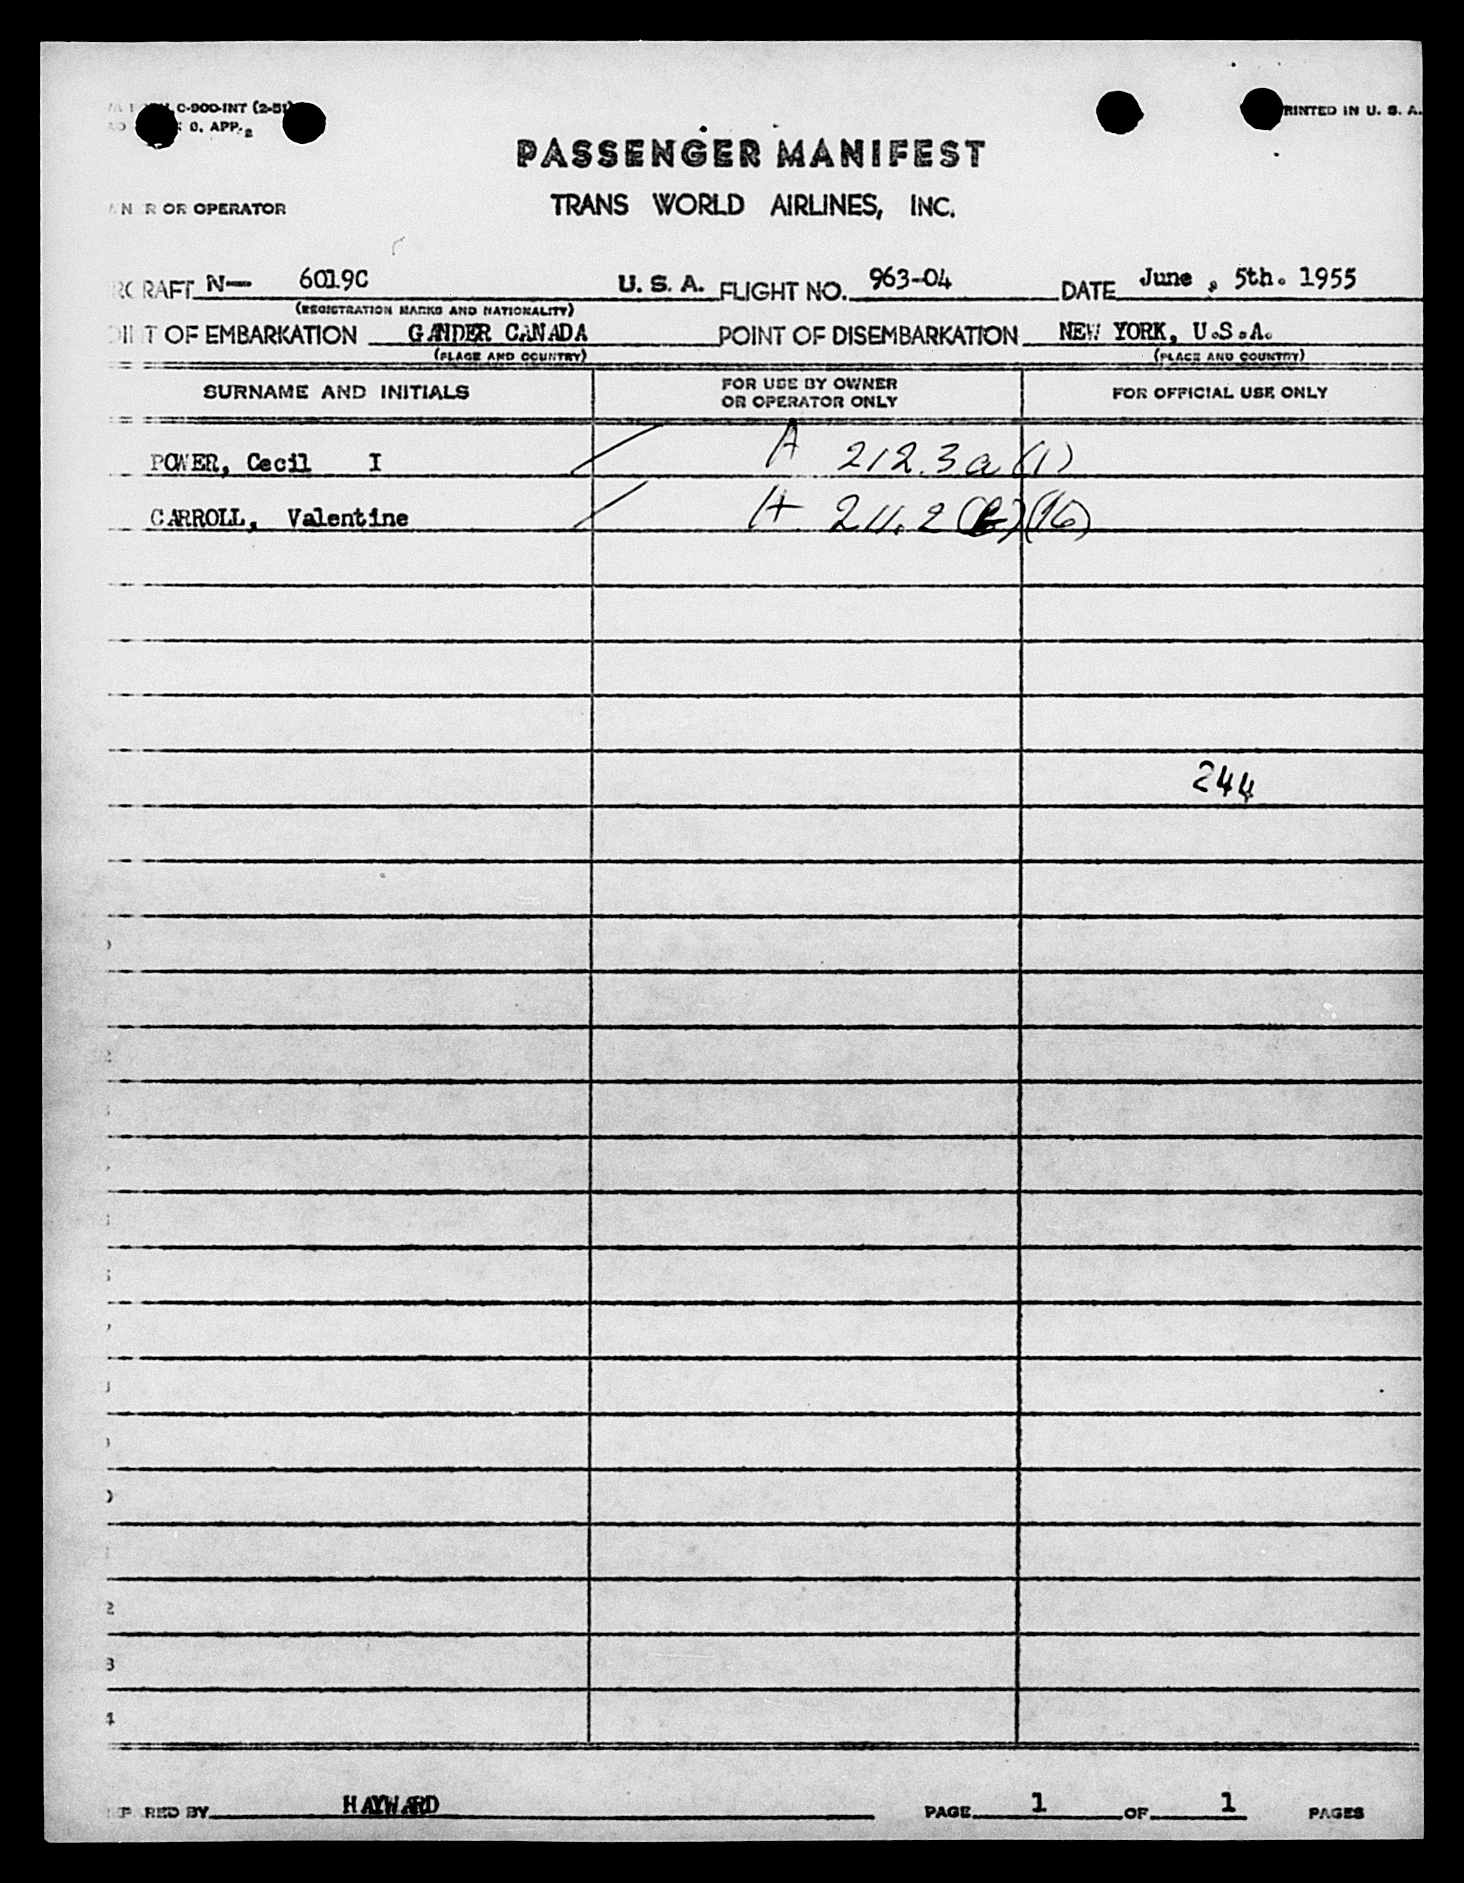 C-900-INT (2-51)
O. APP.
PRINTED IN U. S. A.
PASSENGER MANIFEST
OR OPERATOR TRANS WORLD AIRLINES, INC.
AIRCRAFT N— 6019C U. S. A. FLIGHT NO. 963-04 DATE June , 5th. 1955
(REGISTRATION MARKS AND NATIONALITY)
POINT OF EMBARKATION GANDER CANADA POINT OF DISEMBARKATION NEW YORK, U.S.A.
(PLACE AND COUNTRY) (PLACE AND COUNTRY)
SURNAME AND INITIALS FOR USE BY OWNER OR OPERATOR ONLY FOR OFFICIAL USE ONLY
POWER, Cecil I / A 212.3a (1)
CARROLL, Valentine / A 211.2 (16)
244
2
3
4
PREPARED BY HAYWARD PAGE 1 OF 1 PAGES